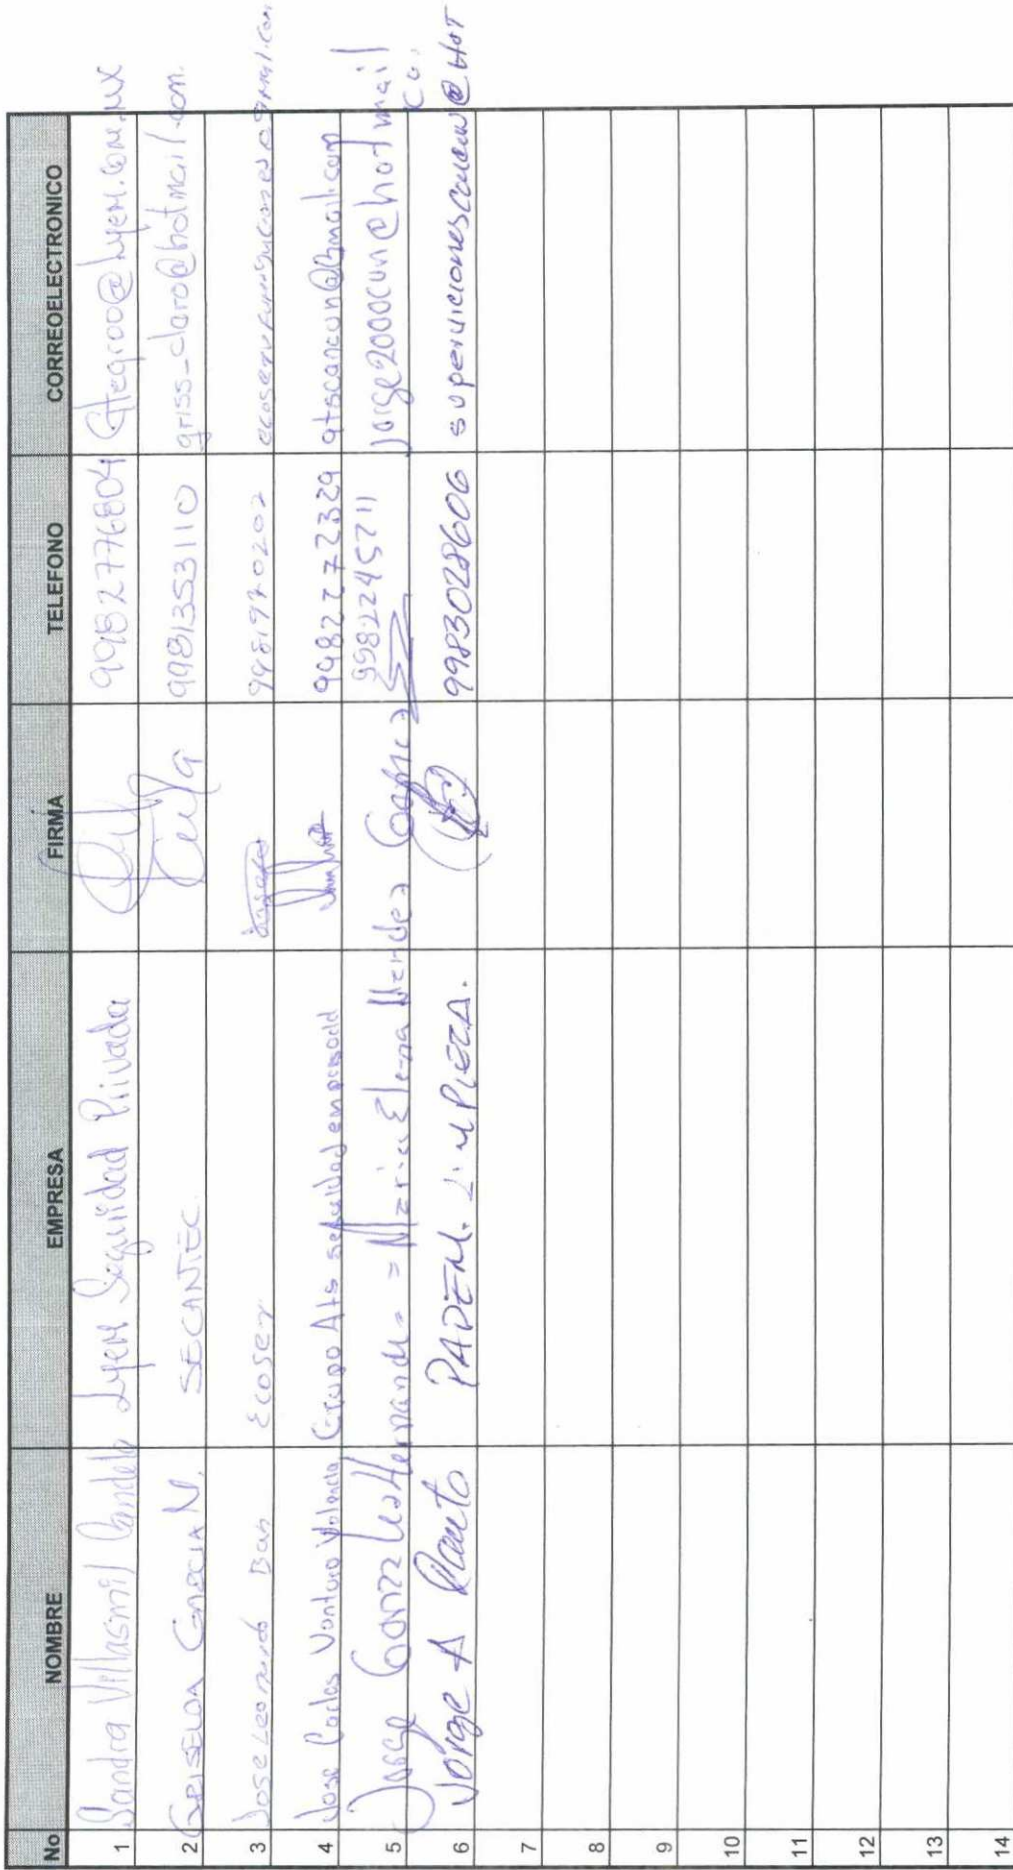 No NOMBRE EMPRESA FIRMA TELEFONO CORREOELECTRONICO
1 Sandra Villasmil Candela Lyem Seguridad Privada 9982776804 @lyem.com.mx
2 GRISELDA GARCIA N. SECANTEC. 9981353110 griss_claro@hotmail.com.
3 Jose Leonardo Ecoser 9981970202
4 Jose Carlos Ventura Valencia Grupo Ats seguridad 9982772329 atscancun@gmail.com
5 Jorge Gonzalez Hernandez = Maria Elena Mendez 9982245711 jorge2000cun@hotmail
Co.
6 Jorge A PADEM. LIMPIEZA. 9983028606 supervicionescancun@HOT
7
8
9
10
11
12
13
14